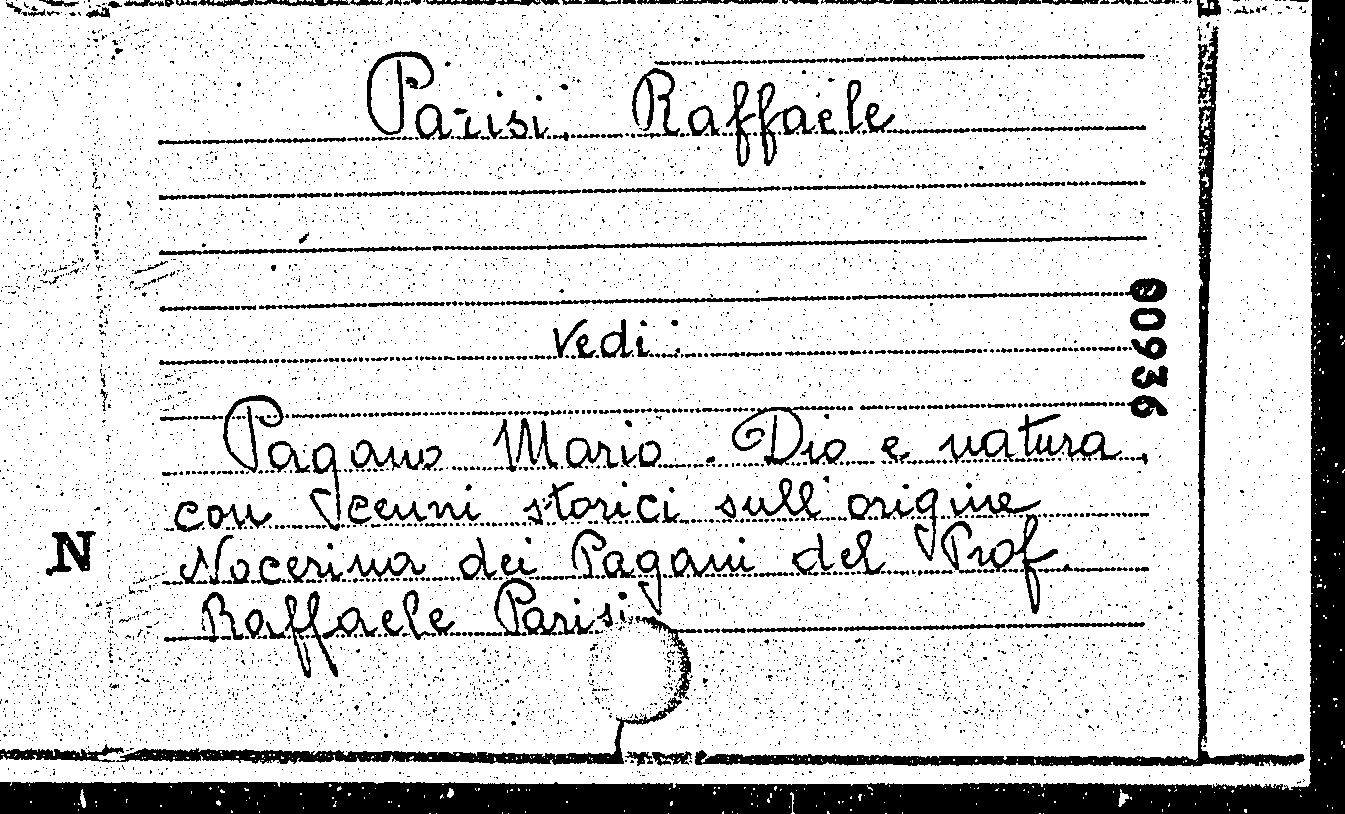 Parisi, Raffaele
Vedi:
Pagano Mario. Dio e natura,
con cenni storici sull'origine
Nocerina dei Pagani del Prof.
Raffaele Parisi
N
00936